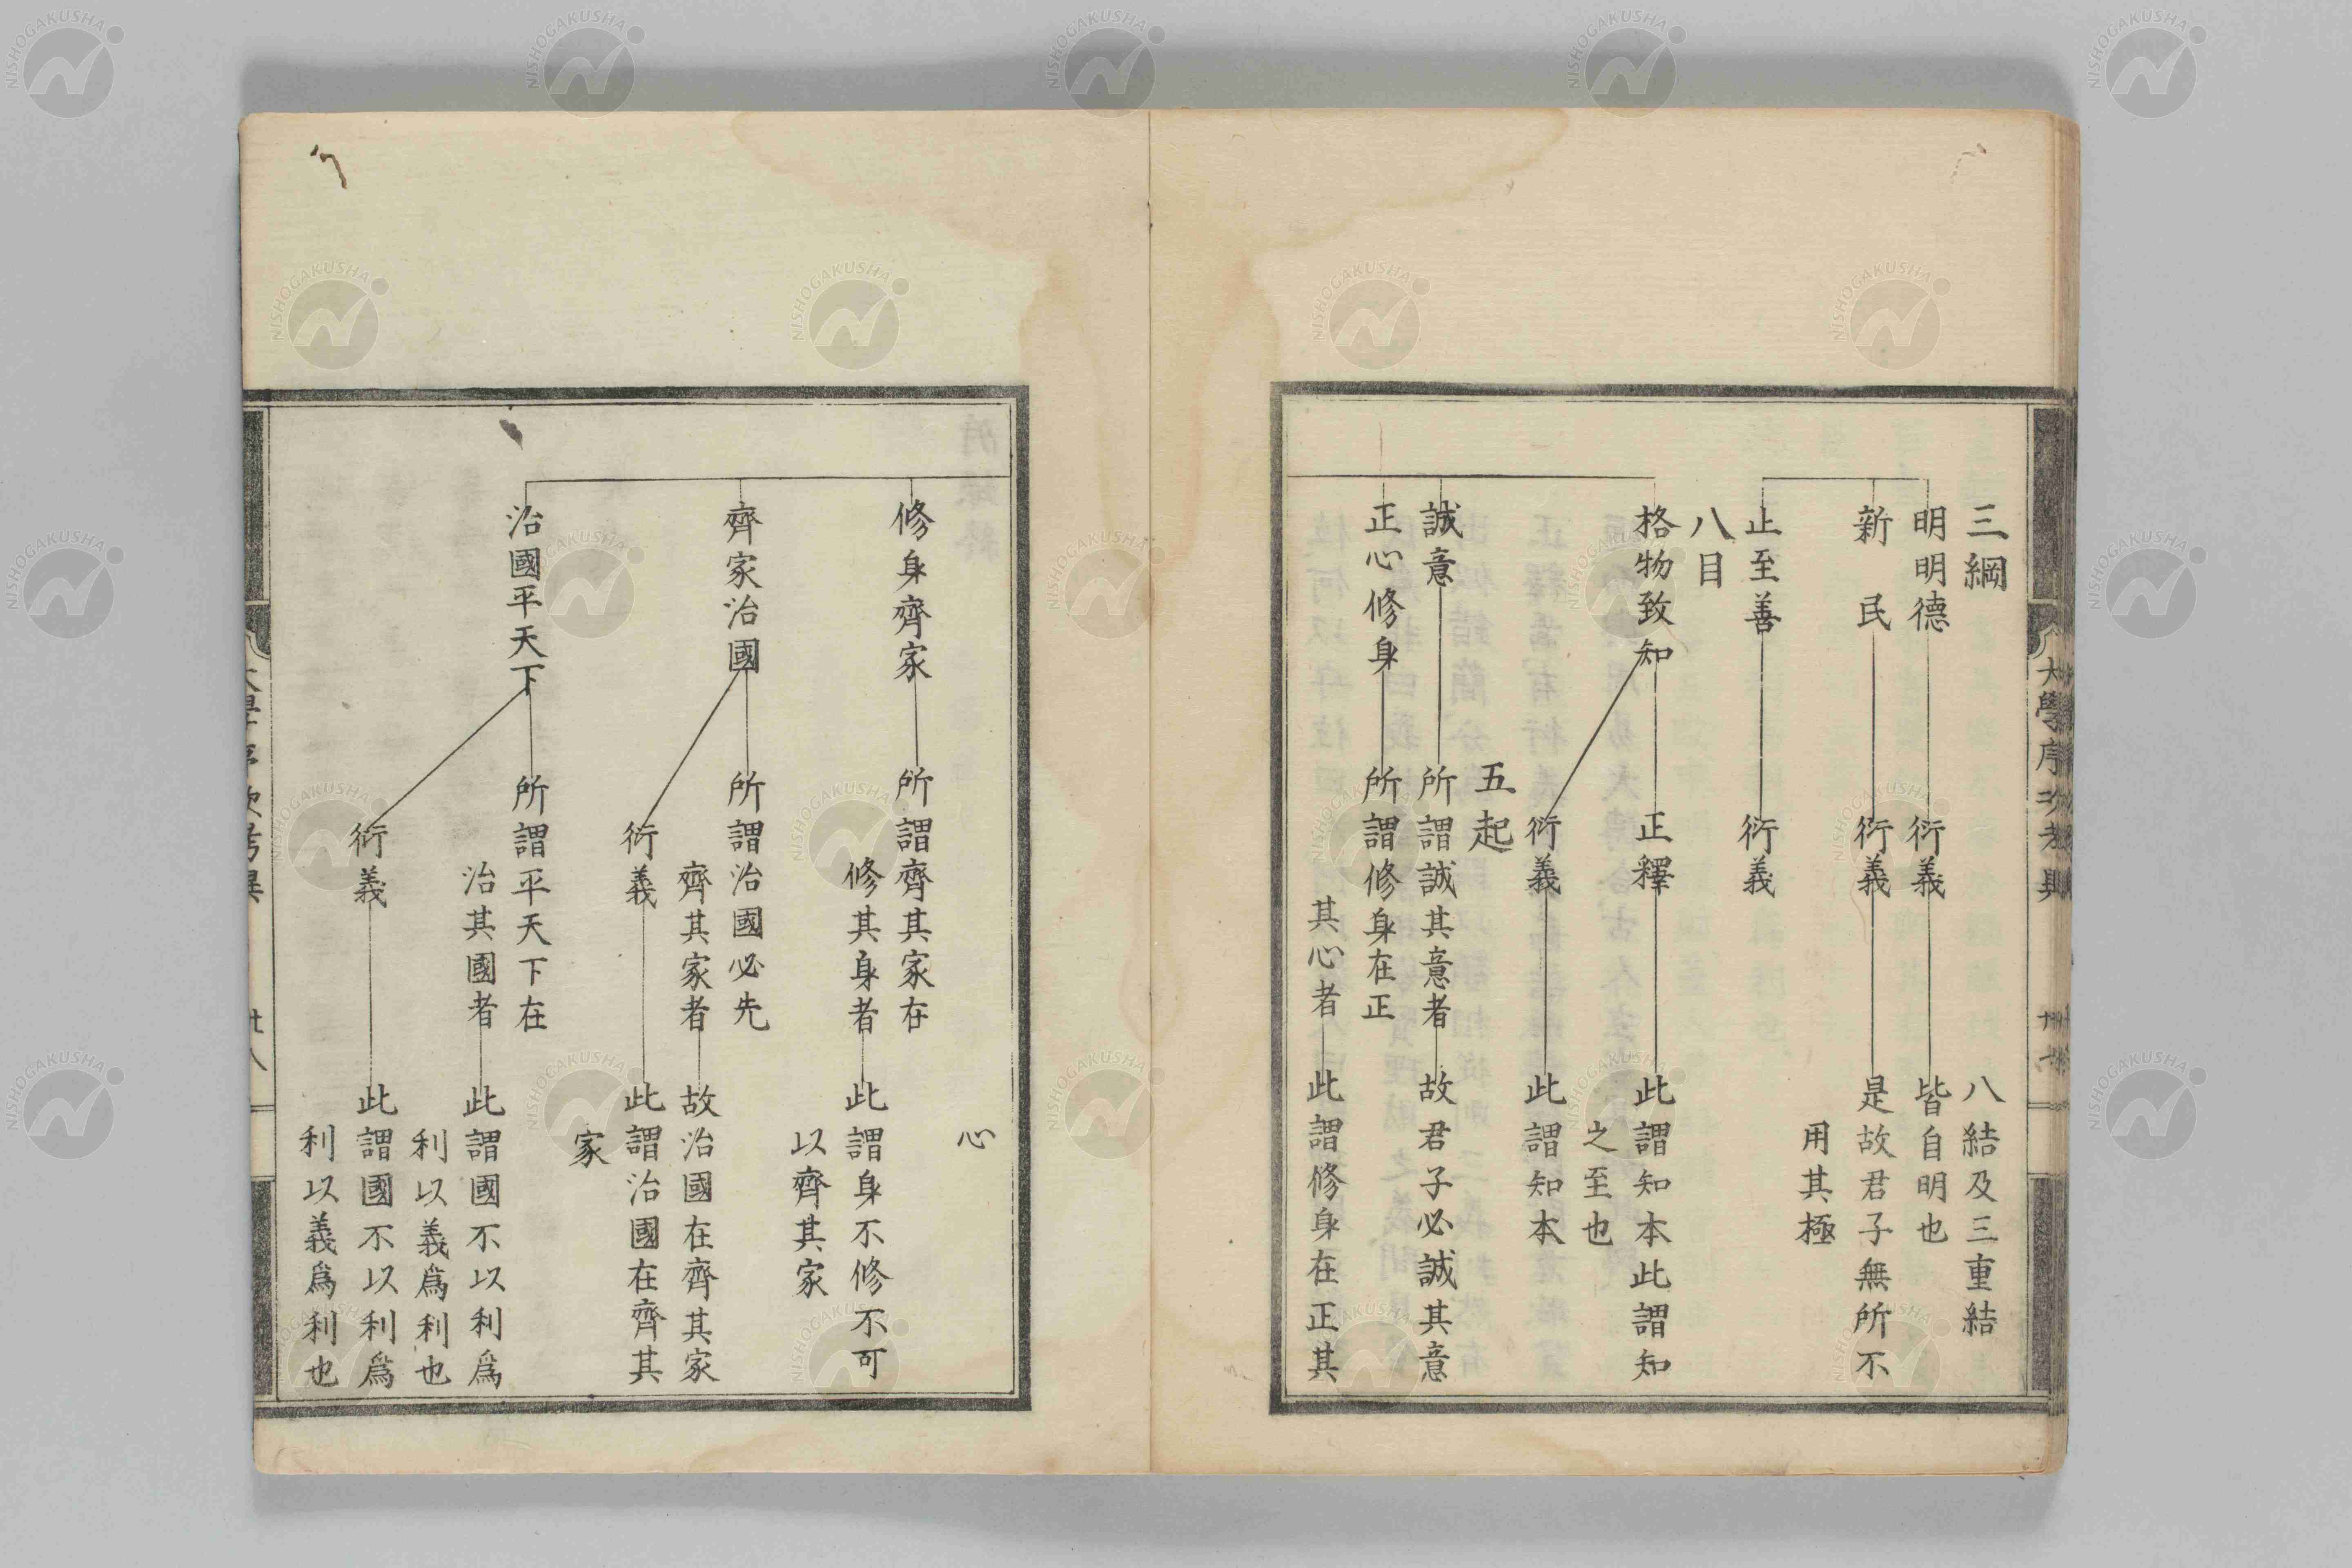 三綱
八結及三重結
明明德
衍義
皆自明也
新民
衍義
是故君子無所不
用其極
止至善
衍義
八目
格物致知
正釋
此謂知本此謂知
之至也
衍義
此謂知本
五起
誠意
所謂誠其意者
故君子必誠其意
正心修身
所謂修身在正
其心者
此謂修身在正其
心
修身齊家
所謂齊其家在
修其身者
此謂身不修不可
以齊其家
齊家治國
所謂治國必先
齊其家者
故治國在齊其家
衍義
此謂治國在齊其
家
治國平天下
所謂平天下在
治其國者
此謂國不以利爲
利以義爲利也
衍義
此謂國不以利爲
利以義爲利也
大學序次考異
NISHOGAKUSHA